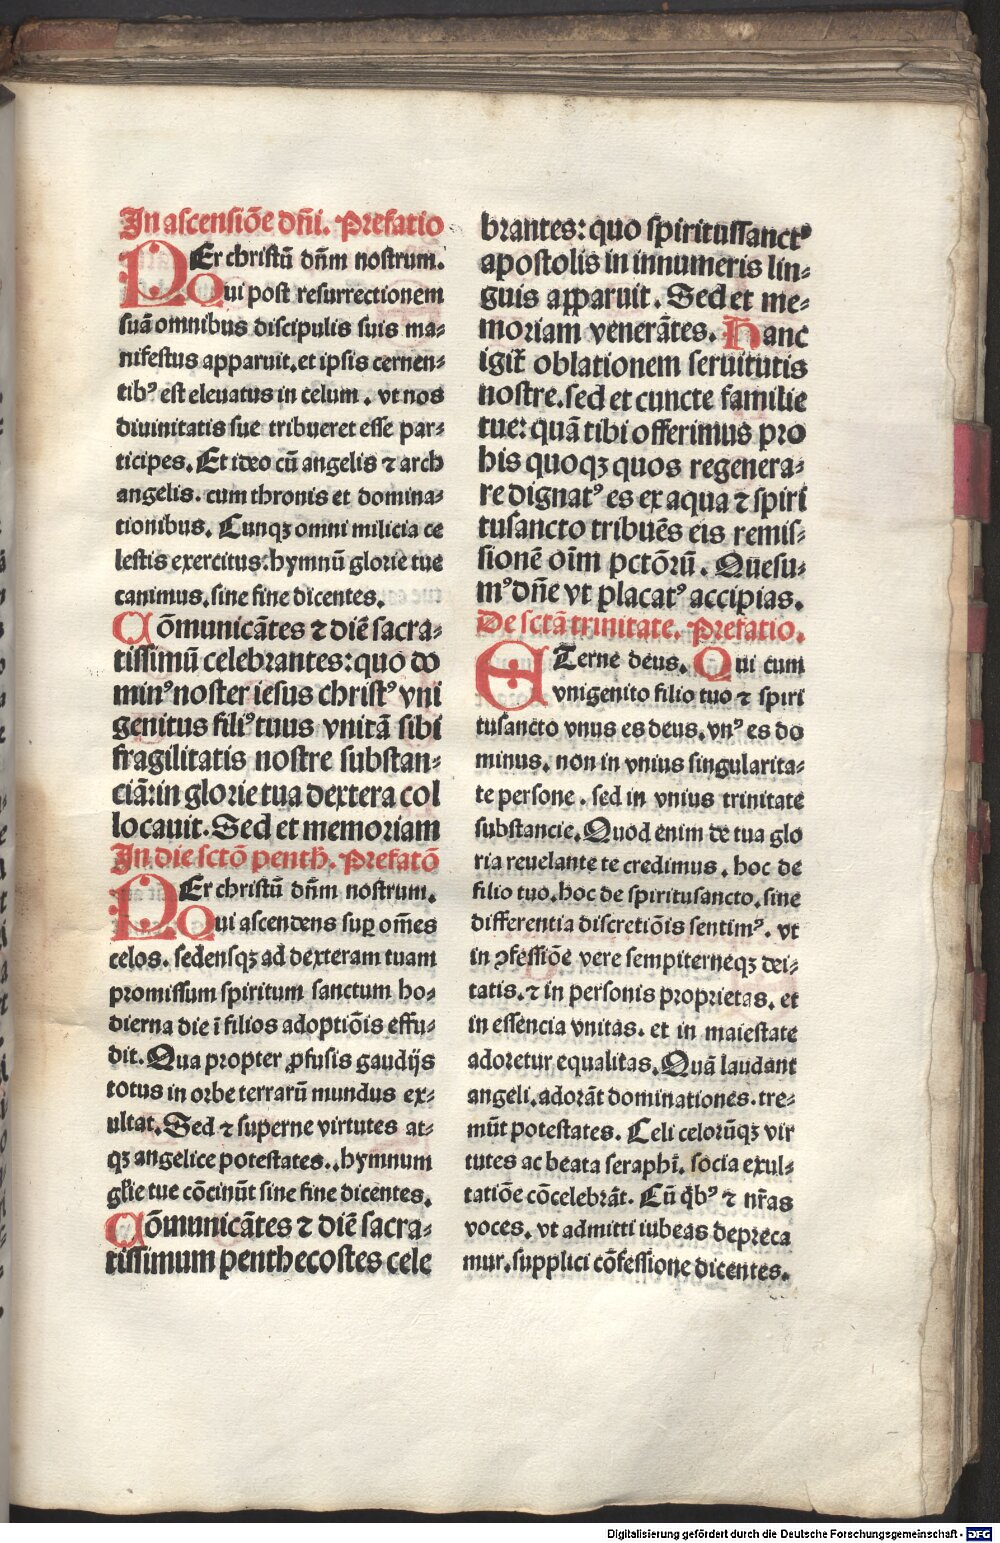 In ascensiõe dñi. Prefatio
PEr christũ dñm nostrum.
Qui post resurrectionem
suã omnibus discipulis suis ma⸗
nifestus apparuit.et ipsis cernen⸗
tibꝰ est eleuatus in celum . vt nos
diuinitatis sue tribueret esse par⸗
ticipes. Et ideo cũ angelis ⁊ arch
angelis. cum thronis et domina⸗
tionibus. Cunqꝫ omni milicia ce
lestis exercitus:hymnũ glorie tue
canimus.sine fine dicentes.
Cõmunicãtes ⁊ diẽ sacra⸗
tissimũ celebrantes:quo do
minꝰ noster iesus christꝰ vni
genitus filiꝰ tuus vnitã sibi
fragilitatis nostre substan⸗
ciã:in glorie tua dextera col
locauit. Sed et memoriam
In die sctõ penth̃. Prefatõ
PEr christũ dñm nostrum.
Qui ascendens suꝑ om̃es
celos. sedensqꝫ ad dexteram tuam
promissum spiritum sanctum ho⸗
dierna die ĩ filios adoptiõis effu⸗
dit. Qua propter ꝓfusis gaudijs
totus in orbe terrarũ mundus ex⸗
ultat. Sed ⁊ superne virtutes at⸗
qꝫ angelice potestates..hymnum
gl̃ie tue cõcinũt sine fine dicentes.
Cõmunicãtes ⁊ diẽ sacra⸗
tissimum penthecostes cele
brantes: quo spiritussanctꝰ
apostolis in innumeris lin⸗
guis apparuit. Sed et me⸗
moriam venerãtes. Hanc
igit̃ oblationem seruitutis
nostre.sed et cuncte familie
tue: quã tibi offerimus pro
his quoqꝫ quos regenera⸗
re dignatꝰ es ex aqua ⁊ spiri
tusancto tribuẽs eis remis⸗
sionẽ oĩm pctõrũ. Quesu⸗
mꝰ dñe vt placatꝰ accipias.
De sctã trinitate. Prefatio.
ETerne deus. Qui cum
vnigenito filio tuo ⁊ spiri
tusancto vnus es deus. vnꝰ es do
minus. non in vnius singularita⸗
te persone . sed in vnius trinitate
substancie. Quod enim de tua glo
ria reuelante te credimus . hoc de
filio tuo. hoc de spiritusancto. sine
differentia discretiõis sentimꝰ. vt
in ꝯfessiõe vere sempiterneqꝫ dei⸗
tatis. ⁊ in personis proprietas. et
in essencia vnitas. et in maiestate
adoretur equalitas. Quã laudant
angeli. adorãt dominationes. tre⸗
mũt potestates. Celi celorũqꝫ vir
tutes ac beata seraphĩ. socia exul⸗
tatiõe cõcelebrãt. Cũ q̃bꝰ ⁊ nr̃as
voces. vt admitti iubeas depreca
mur. supplici cõfessione dicentes.
Digitalisierung gefördert durch die Deutsche Forschungsgemeinschaft - DFG